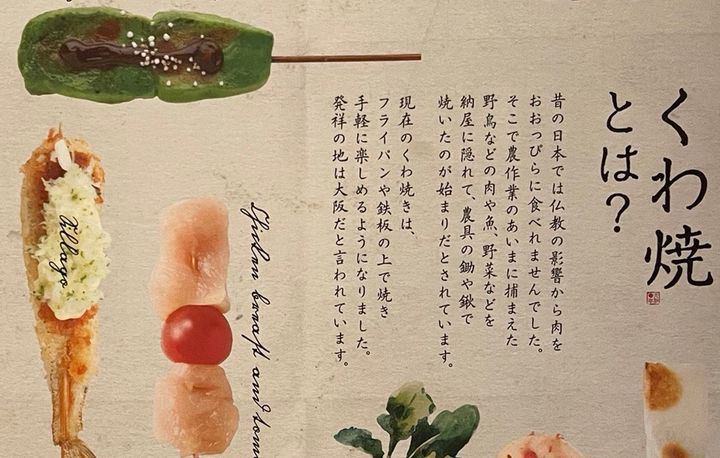 くわ焼
とは?
昔の日本では仏教の影響から肉を
おおっぴらに食べれませんでした。
そこで農作業のあいまに捕まえた
野鳥などの肉や魚、野菜などを
納屋に隠れて、農具の鋤や鍬で
焼いたのが始まりだとされています。
現在のくわ焼きは、
フライパンや鉄板の上で焼き
手軽に楽しめるようになりました。
発祥の地は大阪だと言われています。